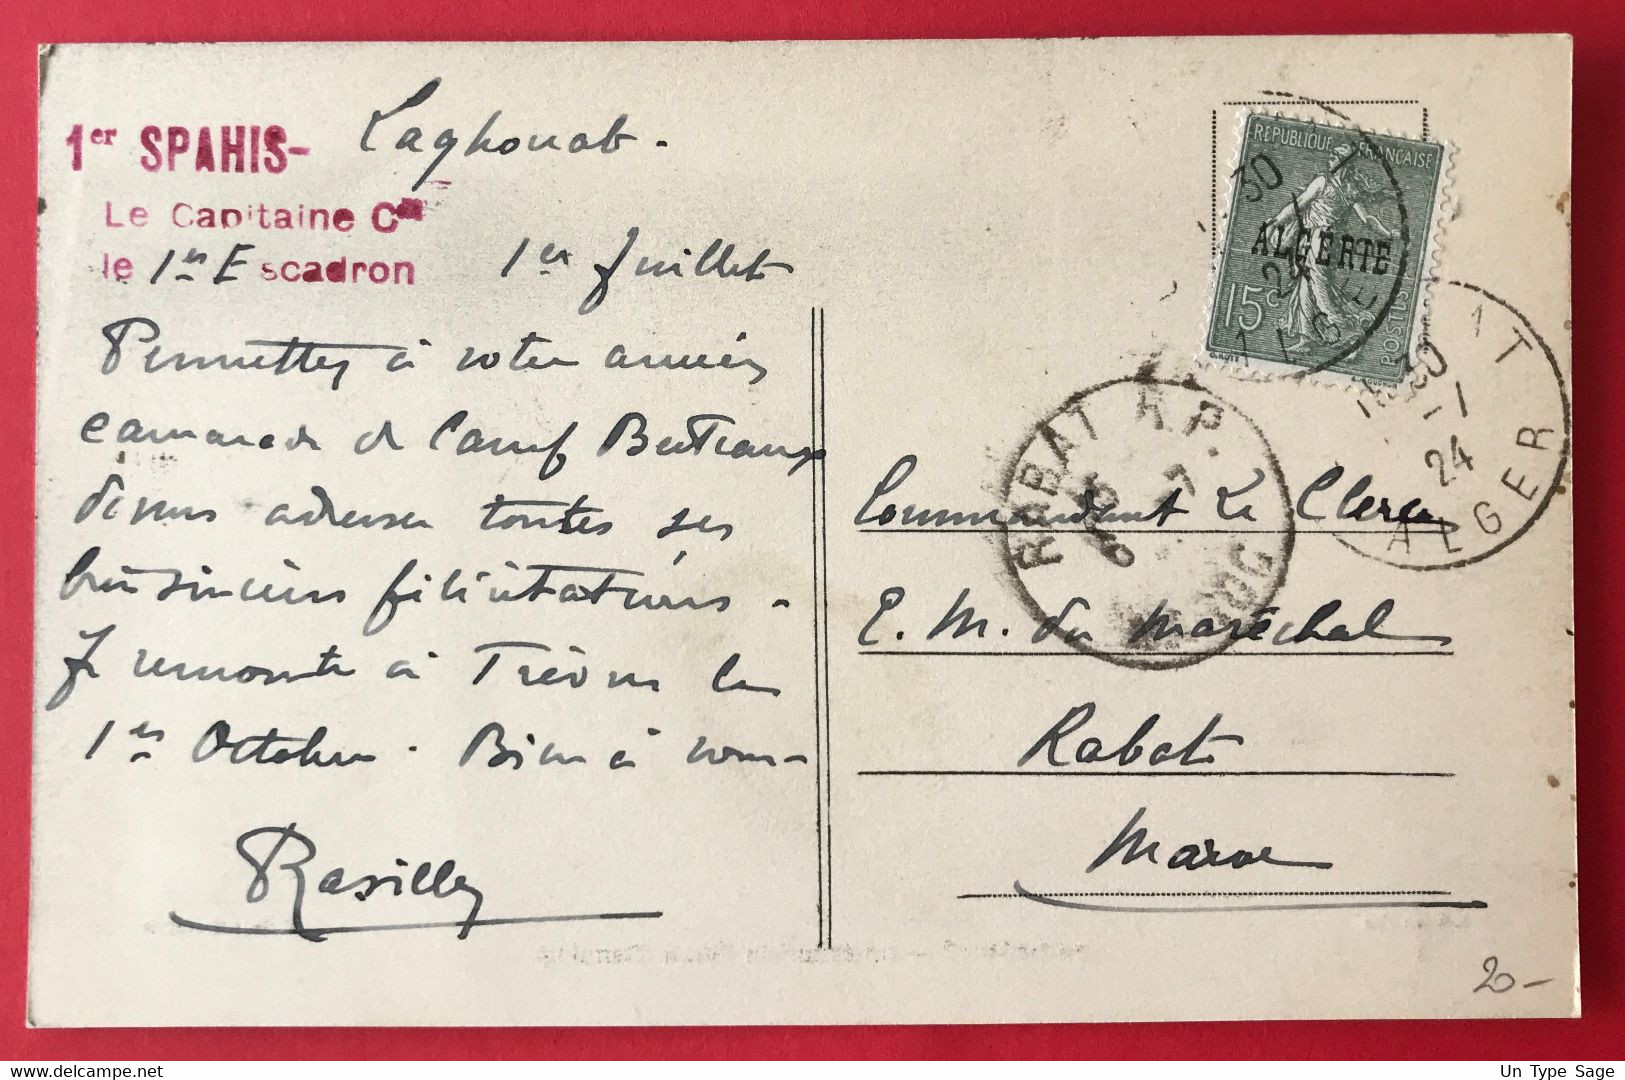 1er SPAHIS-
Laghouat.
Le Capitaine Ct
le 1er Escadron
1er Juillet
Permettez à votre ancien
camarade de Camp Berteaux
de vous adresser toutes ses
bien sincères félicitations.
Je remonte à Trèves le
1er Octobre. Bien à vous-
Rasilly
REPUBLIQUE FRANÇAISE
ALGÉRIE
15c
POSTES
30
24
30
24
ALGER
RABAT R.P.
MAROC
Commandant Le Clerc
E. M. du Maréchal
Rabat
Maroc
20-
Un Type Sage